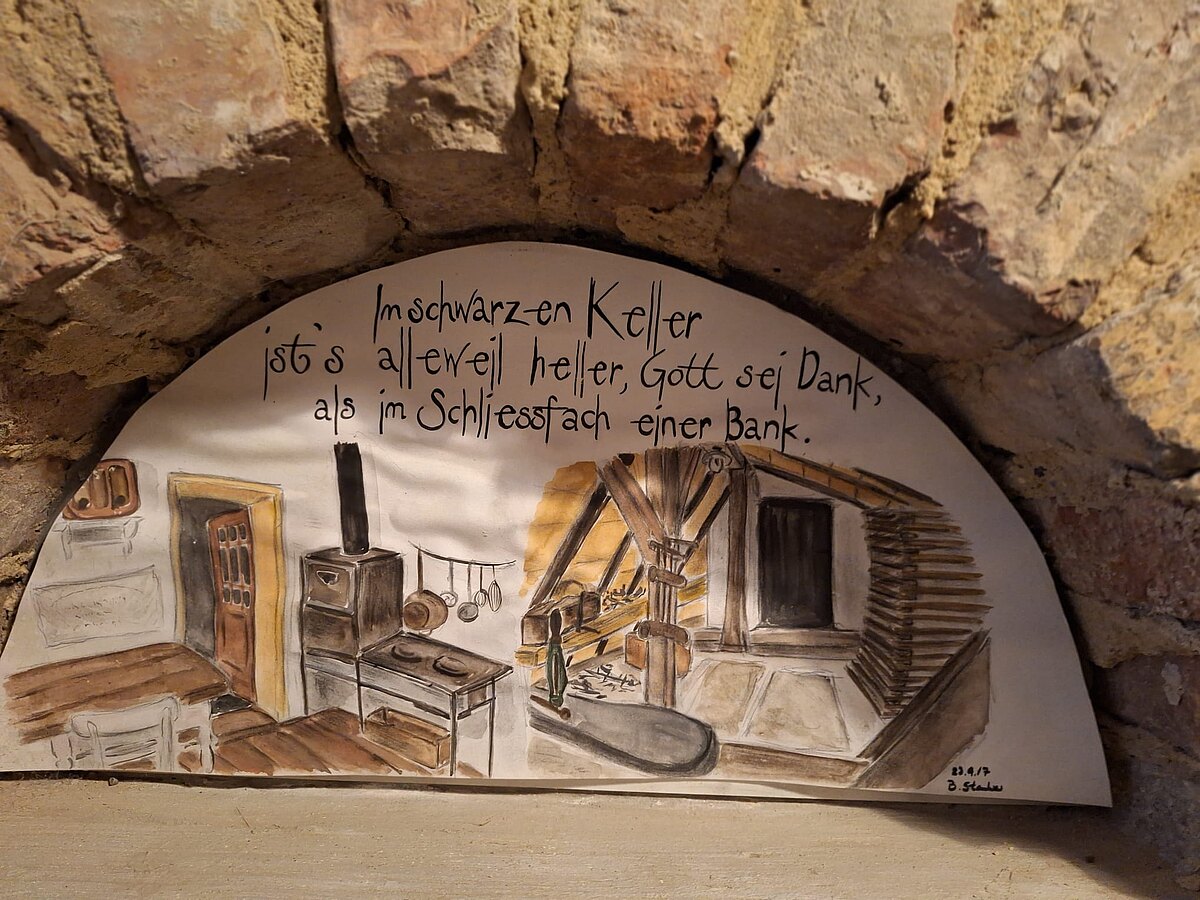 Im schwarzen Keller
ist's alleweil heller, Gott sei Dank,
als im Schliessfach einer Bank.
23.9.17